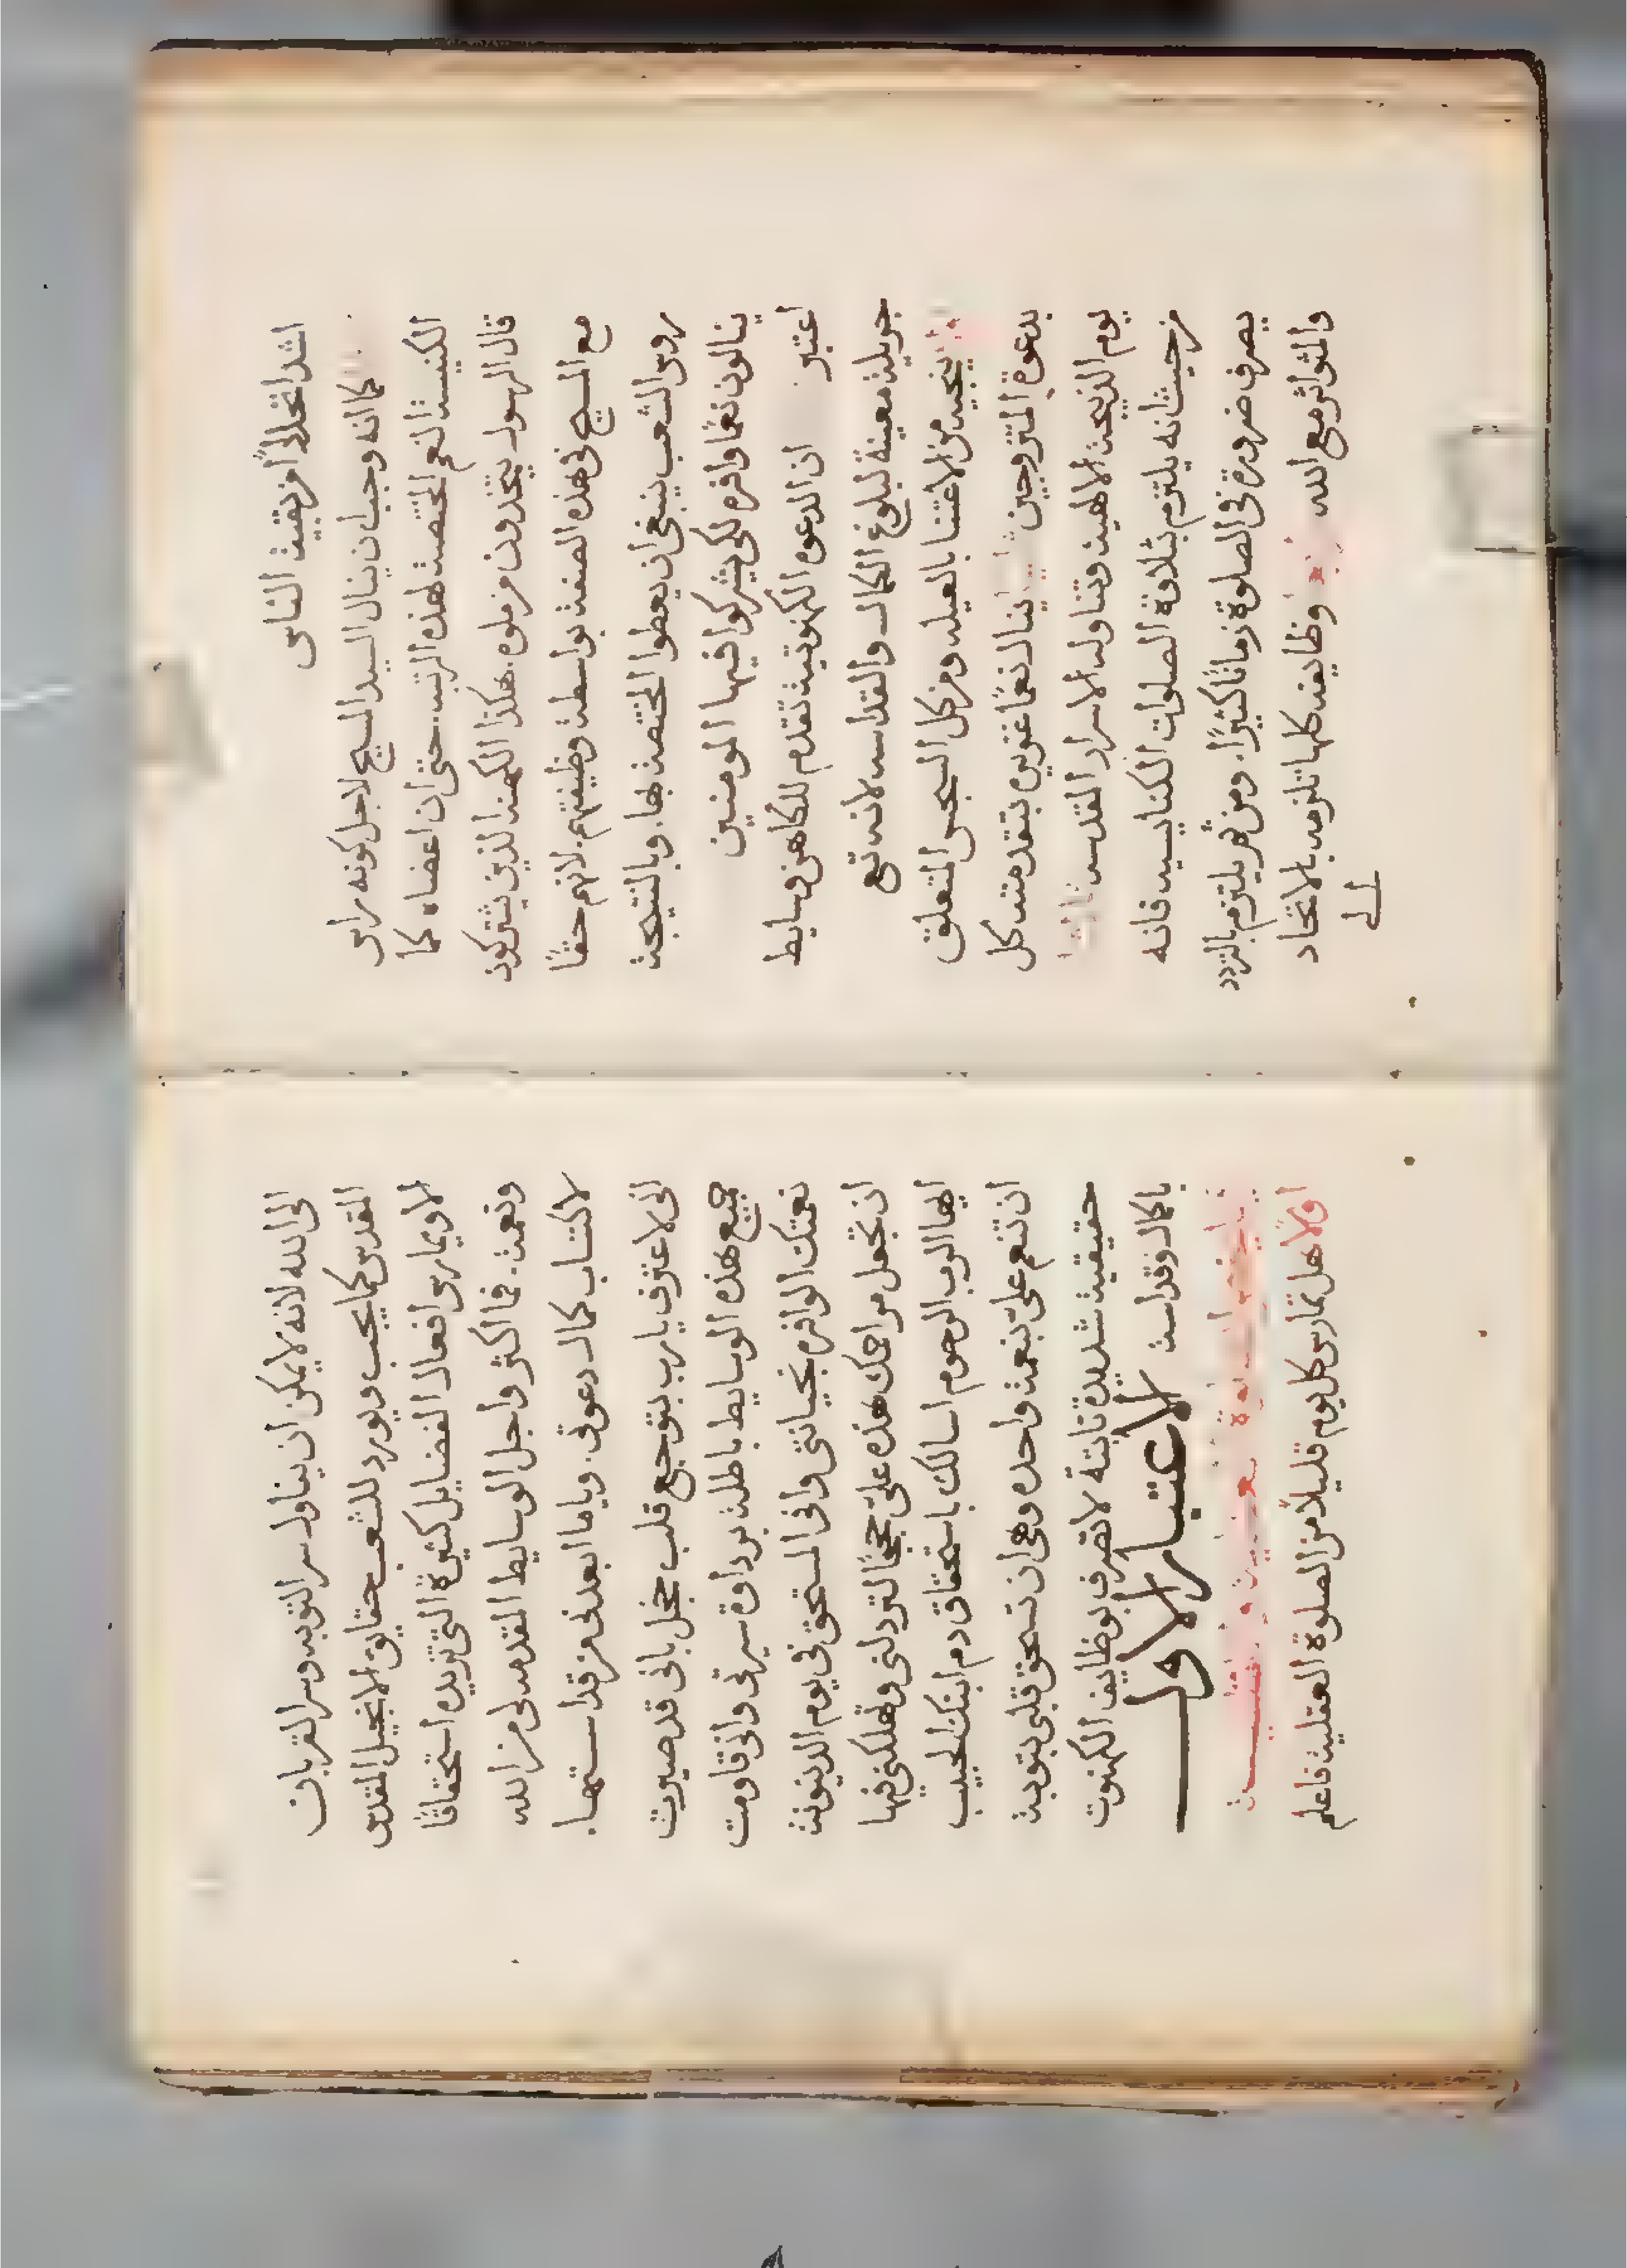 اشد اتحلالًا من بقيت الناس
كما انه وجب ان ينال السيد المسيح لاجل كونه راس
الكنيسة النعم المختصة لهذه الرتبه. حتى ان اعضاه كما
قال الرسول يتخذون من ملوه. هكذا الكهنة الذين يشتركون
مع المسيح في هذه الصفة بواسطة وظيفتهم. لانهم حقًا
روس الشعب ينبغي ان يعطوا المختصة بها. وبالنتيجة
ينالون نعمًا وافره لكي يشركوا فيها المومنين
اعتبر ان الدعوه الكهنوتية تقدم للكاهن وسايط
جزيلة معينة لبلوغ الكمال والقداسه لانه تع
ينجيه من الاعتنا بالعيله ومن كل السجس المتعلق
بدعوة المتزوجين ينال نعمًا غزيره بتقدمته كل
يوم الذبيحة الالهية وتناوله الاسرار المقدسه ثالثًا
من حيث انه يلتزم بتلاوة الصلوات الكنايسيه فانه
يصرف ضرورة في الصلوة زمانًا كثيرًا. ومن ثم يلتزم بالتردد
والمتواتر مع الله وظايفه كلها تلزمه بالاتحاد
الى
الى الله لانه لا يمكن ان يناول سر التوبه وسر القربان
المقدس كما يجب ويورد للشعب حقايق الانجيل المقدس
الا ويمارس افعال الفضايل كثيرة التي تزيده استحقاقًا
ونعمة. فما اكثر واجل الوسايط المقدمه لي من الله
لاكتساب كمال دعوتي. وياما ابعدني من قداستها.
اني لاعترف يارب بتوجع قلب خجل باني قد صيرت
جميع هذه الوسايط باطلة برداوة سيرتي واني قاومت
نعمتك الوافره بخيانتي واني المستحق في يوم الدينونة
ان تجعل مراحمك هذه عليّ حججًا لترذلني وتهلكني فيها
ايها الرب الرحوم اسالك باستحقاق دم ابنك الحبيب
ان تنعم عليّ بنعمة واحده وهي ان تسحق قلبي بتوبة
حقيقية شديدة ثابتة لاتصرف بوظايف الكهنوت
باكمال وقداسة الاعتبار الاول
اولًا هل تمارس كل يوم قليلًا من الصلوة العقلية فاعلم